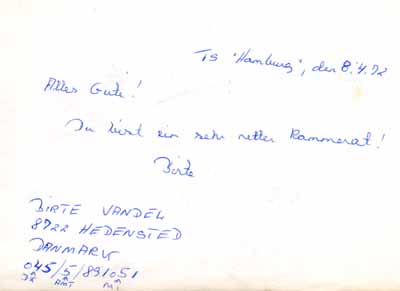 TS "Hamburg", den 8.4.72
Alles Gute!
Du bist ein sehr netter Kammerat!
Birte
BIRTE VANDEL
8722 HEDENSTED
DANMARK
045/5/891051
DK AMT